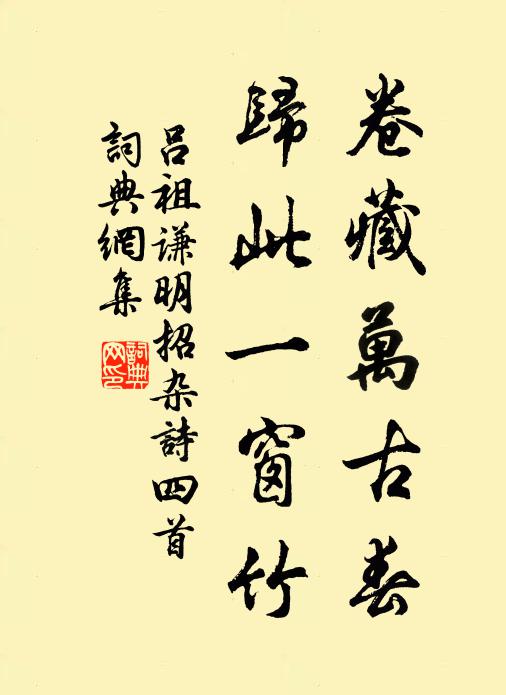 卷藏萬古春
歸此一窗竹
吕祖谦明招杂詩四首
詞典網集
詞典
网印